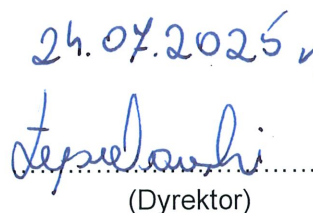 24.07.2025 r
(Dyrektor)